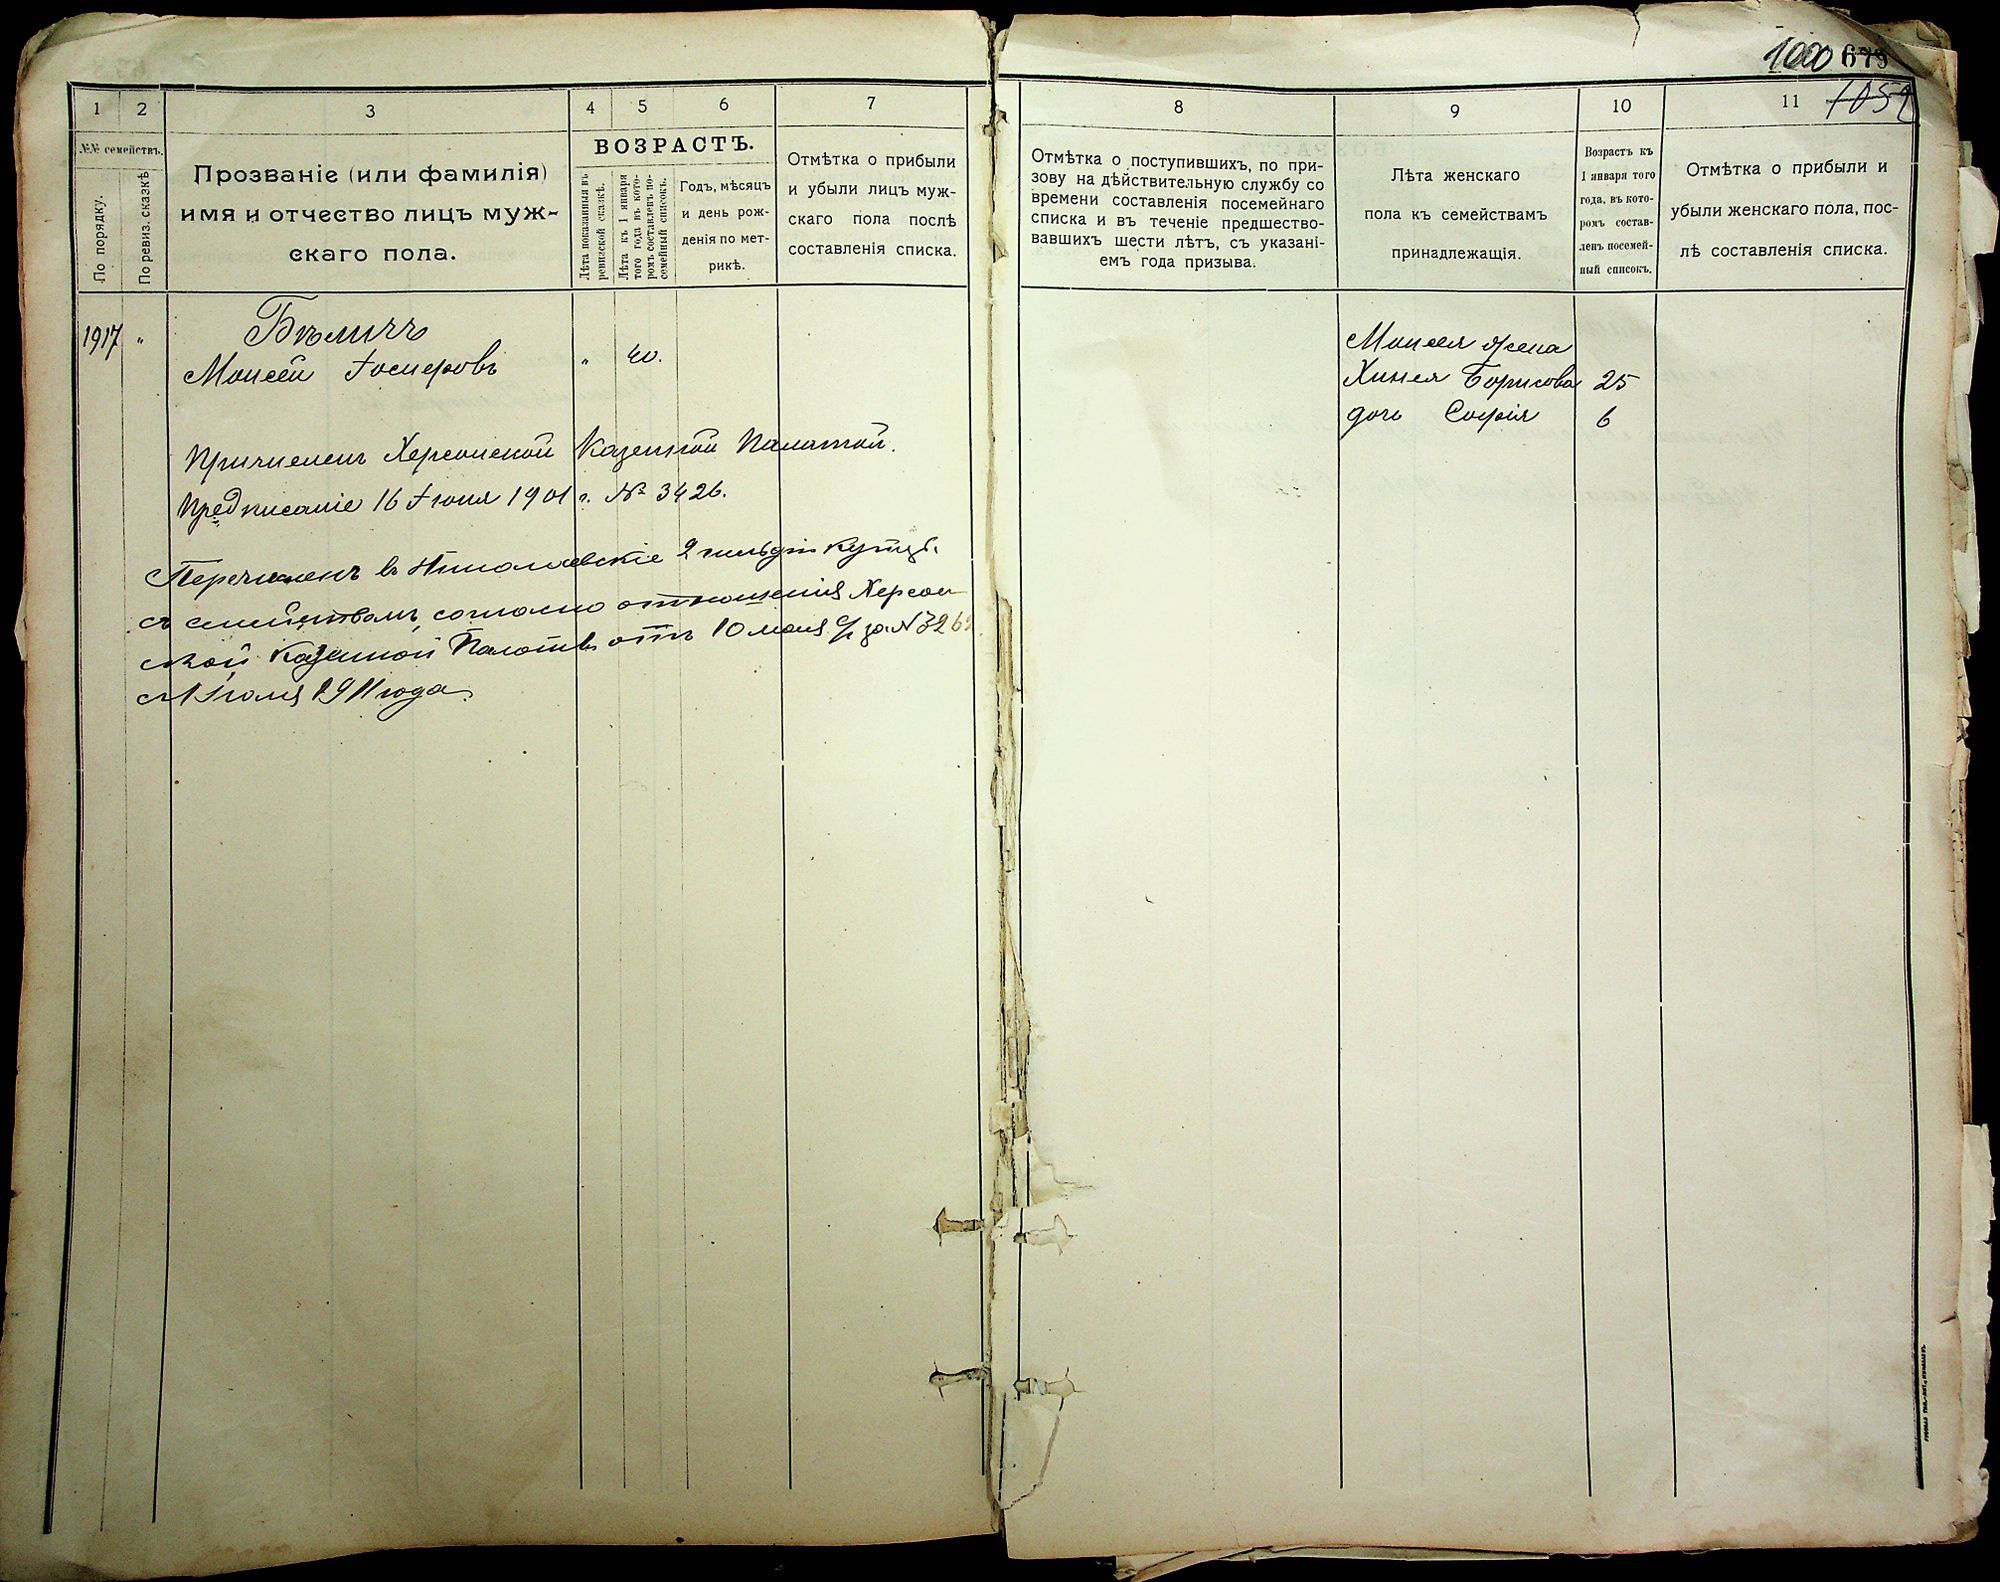 1000 679
1059
1
2
3
4
5
6
7
8
9
10
11
№№ семействъ.
По порядку.
По ревиз. сказкѣ
Прозваніе (или фамилія)
имя и отчество лицъ муж-
скаго пола.
ВОЗРАСТЪ.
Лѣта показанныя въ
ревизской сказкѣ.
Лѣта къ 1 января
того года въ кото-
ромъ составленъ по-
семейный списокъ.
Годъ, мѣсяцъ
и день рож-
денія по мет-
рикѣ.
Отмѣтка о прибыли
и убыли лицъ муж-
скаго пола послѣ
составленія списка.
Отмѣтка о поступившихъ, по при-
зову на дѣйствительную службу со
времени составленія посемейнаго
списка и въ теченіе предшество-
вавшихъ шести лѣтъ, съ указані-
емъ года призыва.
Лѣта женскаго
пола къ семействамъ
принадлежащія.
Возрастъ къ
1 января того
года, въ кото-
ромъ состав-
ленъ посемей-
ный списокъ.
Отмѣтка о прибыли и
убыли женскаго пола, пос-
лѣ составленія списка.
1917 "
Бѣличъ
Моисей Іосифовъ " 40.
Причисленъ Херсонской Казенной Палатой.
Предписаніе 16 Іюня 1901 г. № 3426.
Перечисленъ въ Николаевскіе 2 гильдіи купцы
съ семействомъ, согласно отношенія Херсон
ской Казенной Палаты отъ 10 мая с/г за №
съ 1 Іюля 1911 года.
Моисея жена
Борисова 25
дочь Софія 6